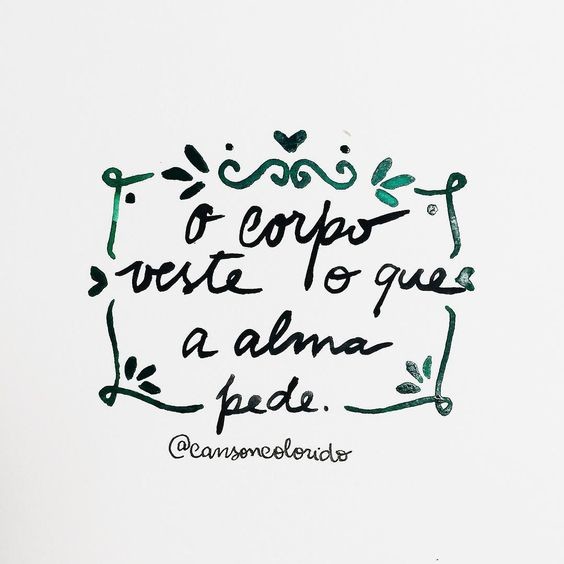 o corpo
veste o que
a alma
pede.
@cansoncolorido